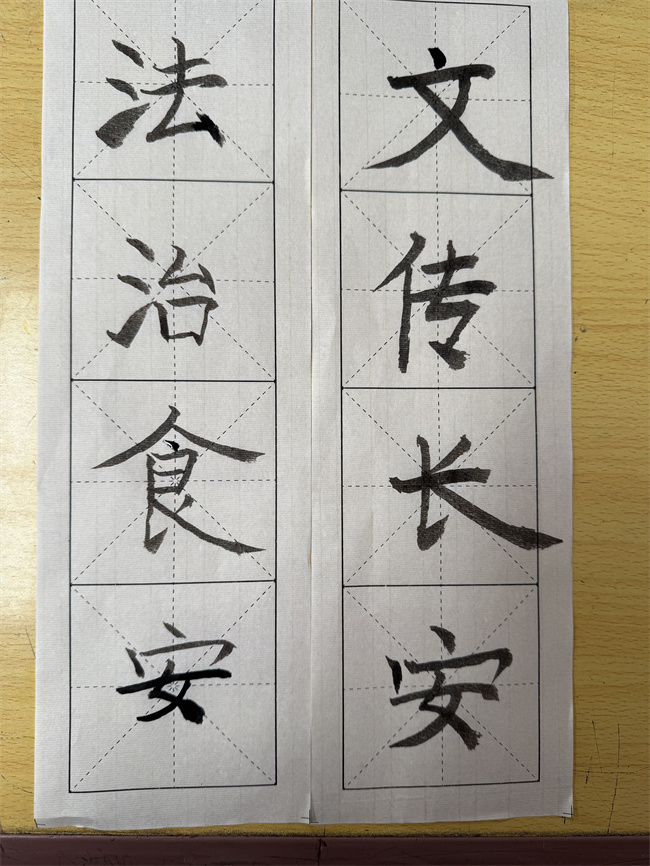 文传长安
法治食安